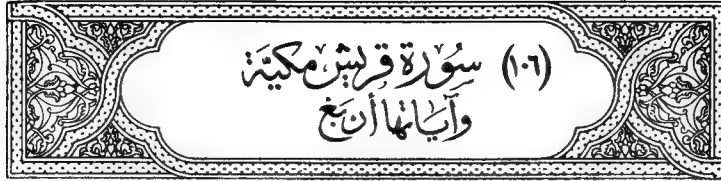 (١٠٦) سُورَة قريش مكيّة
وآياتها أربع